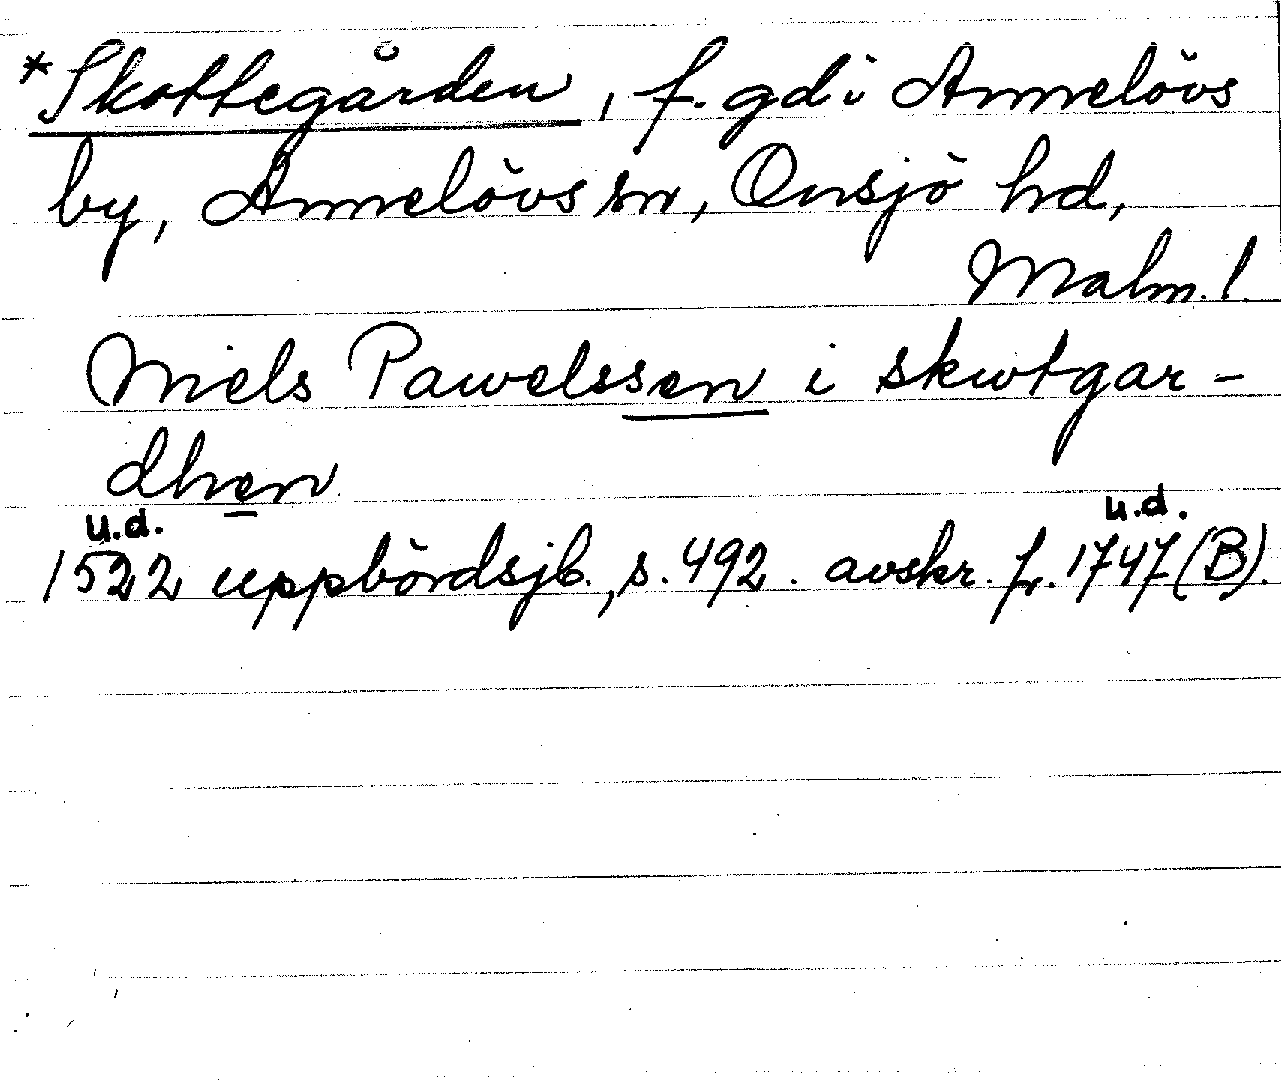 *Skottegården, f. gd i Annelövs
by, Annelövs sn, Onsjö hd,
Malm. l.
Niels Pawelssen i skwtgar-
dhen
u.d. u.d.
1522 uppbördsjb., s. 492. avskr. fr. 1747 (B).